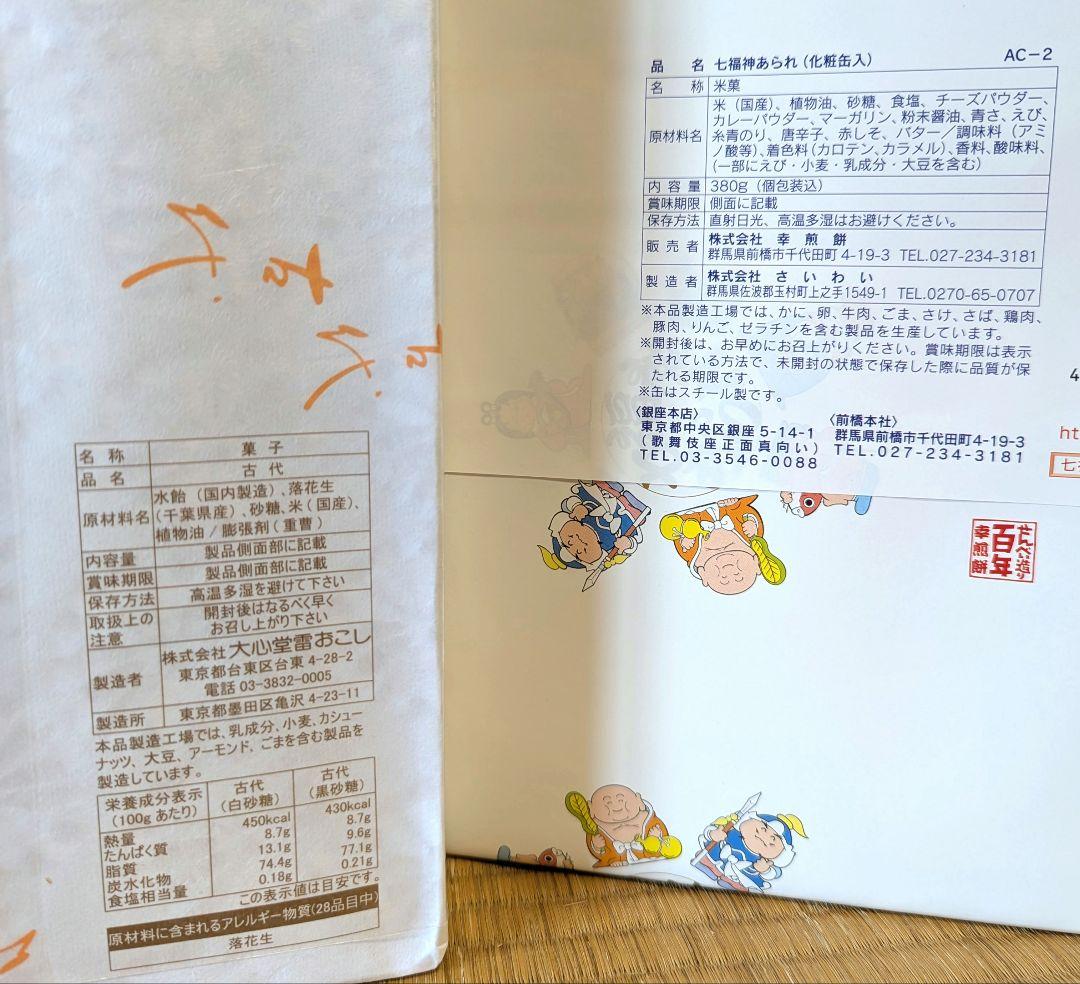 古代
古代
古
名称 菓子
品名 古代
原材料名 水飴（国内製造）、落花生
（千葉県産）、砂糖、米（国産）、
植物油／膨張剤（重曹）
内容量 製品側面部に記載
賞味期限 製品側面部に記載
保存方法 高温多湿を避けて下さい
取扱上の注意 開封後はなるべく早く
お召し上がり下さい
製造者 株式会社大心堂雷おこし
東京都台東区台東 4-28-2
電話 03-3832-0005
製造所 東京都墨田区亀沢 4-23-11
本品製造工場では、乳成分、小麦、カシュー
ナッツ、大豆、アーモンド、ごまを含む製品を
製造しています。
栄養成分表示（100gあたり） 古代（白砂糖） 古代（黒砂糖）
熱量 450kcal 430kcal
たんぱく質 8.7g 8.7g
脂質 13.1g 9.6g
炭水化物 74.4g 77.1g
食塩相当量 0.18g 0.21g
この表示値は目安です。
原材料に含まれるアレルギー物質(28品目中)
落花生
品名 七福神あられ（化粧缶入） AC－2
名称 米菓
原材料名 米（国産）、植物油、砂糖、食塩、チーズパウダー、
カレーパウダー、マーガリン、粉末醤油、青さ、えび、
糸青のり、唐辛子、赤しそ、バター／調味料（アミ
ノ酸等）、着色料（カロテン、カラメル）、香料、酸味料、
（一部にえび・小麦・乳成分・大豆を含む）
内容量 380g（個包装込）
賞味期限 側面に記載
保存方法 直射日光、高温多湿はお避けください。
販売者 株式会社 幸煎餅
群馬県前橋市千代田町 4-19-3 TEL.027-234-3181
製造者 株式会社 さいわい
群馬県佐波郡玉村町上之手1549-1 TEL.0270-65-0707
※本品製造工場では、かに、卵、牛肉、ごま、さけ、さば、鶏肉、
豚肉、りんご、ゼラチンを含む製品を生産しています。
※開封後は、お早めにお召上がりください。賞味期限は表示
されている方法で、未開封の状態で保存した際に品質が保
たれる期限です。
※缶はスチール製です。
〈銀座本店〉
東京都中央区銀座 5-14-1
（歌舞伎座正面真向い）
TEL.03-3546-0088
〈前橋本社〉
群馬県前橋市千代田町4-19-3
TEL.027-234-3181
4
ht
七
せんべい造り
百年
幸煎餅